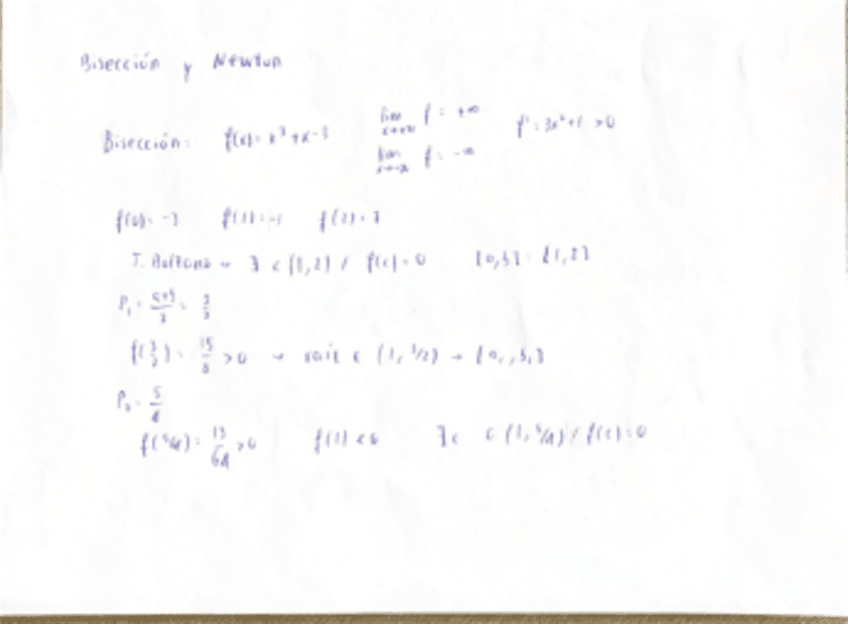 Bisección y Newton
Bisección: f(x) = x³ + x - 3 lim x→+∞ f = +∞ f' = 3x² + 1 > 0
lim x→-∞ f = -∞
f(0) = -3 f(1) = -1 f(2) = 7
T. Bolzano → ∃ c (1,2) / f(c) = 0 [a,b] = [1,2]
P₁ = a+b/2 = 3/2
f(3/2) = 15/8 > 0 → raíz ∈ (1, 3/2) → [a₁, b₁]
P₂ = 5/4
f(5/4) = 13/64 > 0 f(1) < 0 ∃ c ∈ (1, 5/4) / f(c) = 0